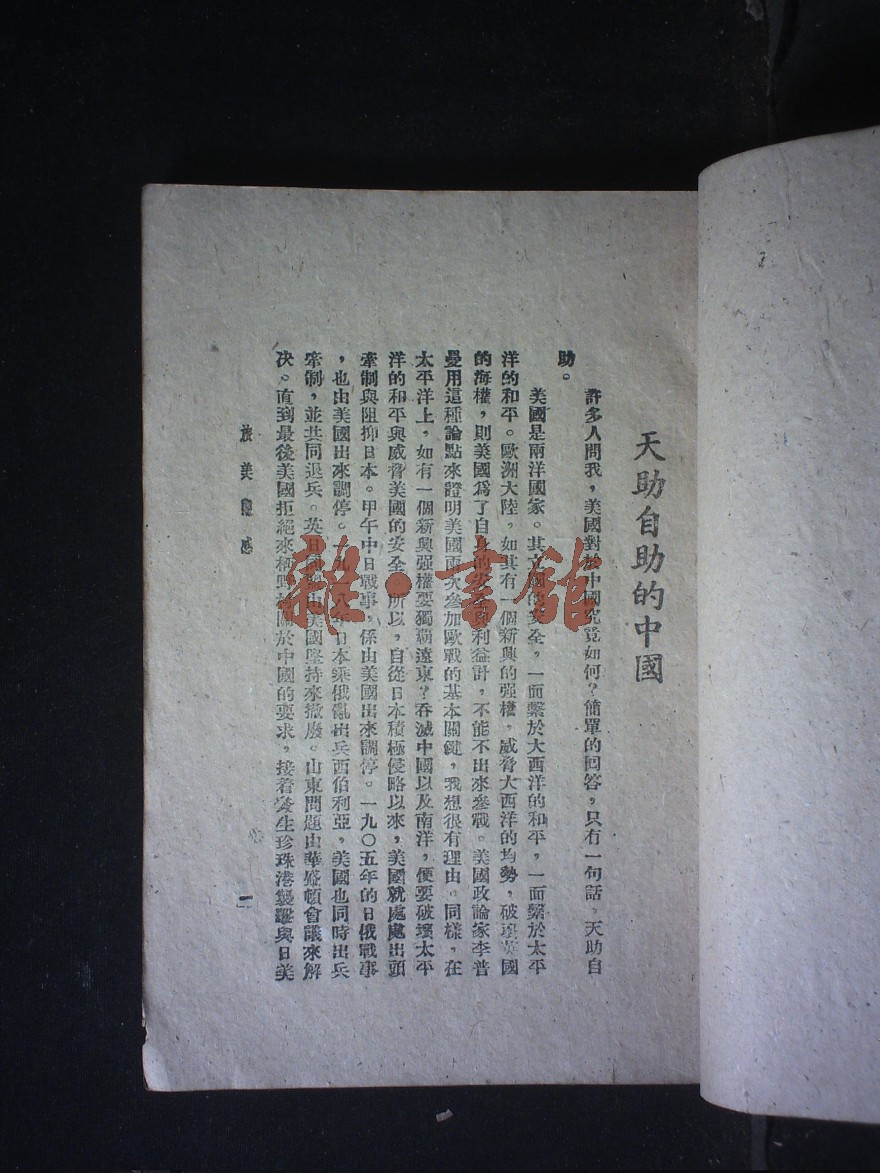 天助自助的中國
許多人問我，美國對於中國究竟如何？簡單的回答，只有一句話，天助自
助。
美國是兩洋國家。其立國的安全，一面繫於大西洋的和平，一面繫於太平
洋的和平。歐洲大陸，如其有一個新興的强權，威脅大西洋的均勢，破壞英國
的海權，則美國爲了自身的安全與利益計，不能不出來參戰。美國政論家李普
曼用這種論點來證明美國兩次參加歐戰的基本關鍵，我想很有理由。同樣，在
太平洋上，如有一個新興强權要獨霸遠東？吞滅中國以及南洋，便要破壞太平
洋的和平與威脅美國的安全。所以，自從日本積極侵略以來，美國就處處出頭
牽制與阻抑日本。甲午中日戰事，係由美國出來調停。一九〇五年的日俄戰事
，也由美國出來調停。一九一八年日本乘俄亂出兵西伯利亞，美國也同時出兵
牽制，並共同退兵。英日同盟由美國堅持來撤廢。山東問題由華盛頓會議來解
决。直到最後美國拒絕來栖野村關於中國的要求，接着發生珍珠港襲擊與日美
旅美觀感
一
雜·書館